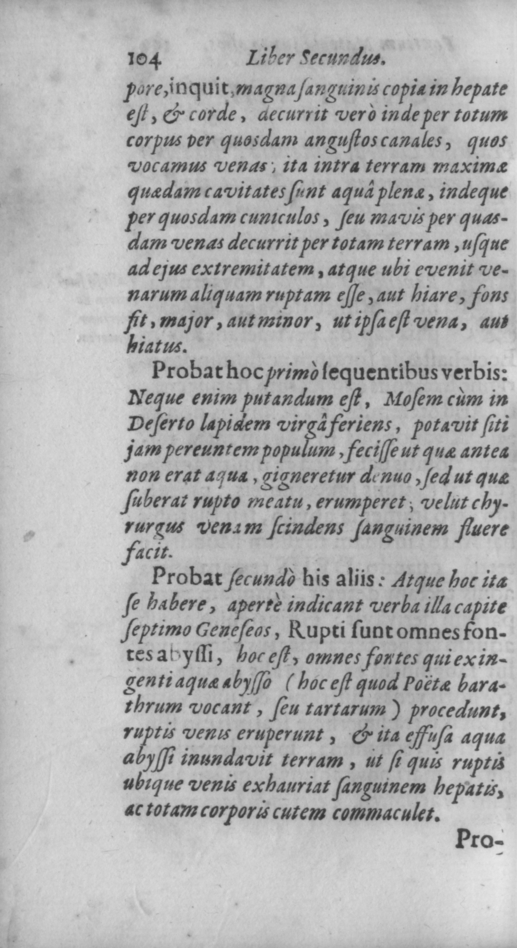 104 Liber Secundus.
pore, inquit, magna ſanguinis copia in hepate
eſt, & corde, decurrit verò inde per totum
corpus per quosdam anguſtos canales, quos
vocamus venas; ita intra terram maximæ
quædam cavitates ſunt aquâ plenæ, indeque
per quosdam cuniculos, ſeu mavis per quas-
dam venas decurrit per totam terram, uſque
ad ejus extremitatem, atque ubi evenit ve-
narum aliquam ruptam eſſe, aut hiare, fons
fit, major, aut minor, ut ipſa eſt vena, aut
hiatus.
Probat hoc primò ſequentibus verbis:
Neque enim putandum eſt, Moſem cùm in
Deſerto lapidem virgâ feriens, potavit ſiti
jam pereuntem populum, feciſſe ut quæ antea
non erat aqua, gigneretur denuo, ſed ut quæ
ſuberat rupto meatu, erumperet; velut chy-
rurgus venam ſcindens ſanguinem fluere
facit.
Probat ſecundò his aliis: Atque hoc ita
ſe habere, apertè indicant verba illa capite
ſeptimo Geneſeos, Rupti ſunt omnes fon-
tes abyſſi, hoc eſt, omnes fontes qui ex in-
genti aquæ abyſſo (hoc eſt quod Poëtæ bara-
thrum vocant, ſeu tartarum) procedunt,
ruptis venis eruperunt, & ita effuſa aqua
abyſſi inundavit terram, ut ſi quis ruptis
ubique venis exhauriat ſanguinem hepatis,
ac totam corporis cutem commaculet.
Pro-